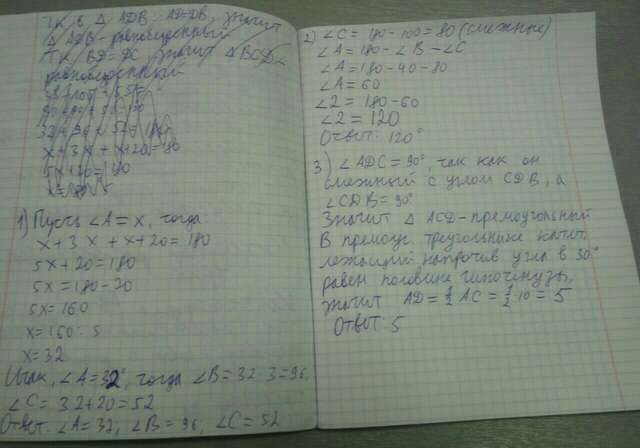 Т.к. в Δ ADB: AD=DB, значит
Δ ADB - равнобедренный
Т.к. BD = DC значит Δ BCD
равнобедренный
x + 3x + x+20=180
5x+20=180
1) Пусть ∠A = x, тогда
x + 3x + x+20 = 180
5x+20=180
5x = 180-20
5x = 160
x = 160 : 5
x = 32
Итак, ∠A = 32°, тогда ∠B = 32·3=96,
∠C = 32+20 = 52
Ответ. ∠A = 32, ∠B = 96, ∠C = 52
2) ∠C = 180-100=80 (смежные)
∠A = 180-∠B-∠C
∠A = 180-40-80
∠A = 60
∠2 = 180-60
∠2 = 120
Ответ: 120°
3) ∠ADC = 90°, так как он
смежный с углом CDB, а
∠CDB = 90°
Значит Δ ACD-премоугольный
В премоуг. треугольнике катет,
лежащий напротив угла в 30°
равен половине гипотенузы,
значит AD = 1/2 AC = 1/2·10 = 5
Ответ: 5